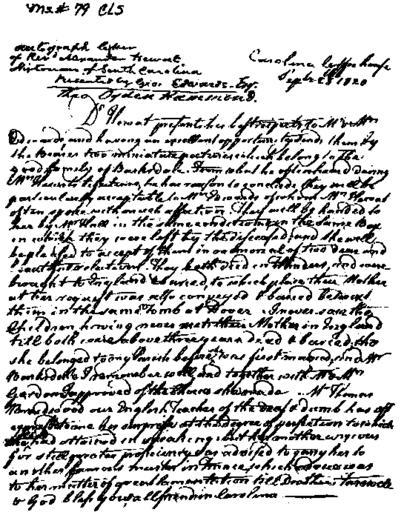 Ms # 79 CLS
Autograph letter
of Rev. Alexander Hewat
Historian of South Carolina
Presented by Geo. Edwards Esq.
Thro Ogden Hammond.
Carolina Coffee house
Sept. 1820
Dr. Hewat presents his best respects to Mr & Mrs
Edwards, and having an excellent opportunity sends them by
the Bearer two miniature pictures which belong to the
good family of Barksdale. From what he often heard during
Mrs lifetime, he has reason to conclude, they will be
particularly acceptable to Mrs Edwards, of whom Mrs
often spoke with much affection. They will be handed to
her by Mr in the same condition and in the same Box
in which they were left by the deceased, and she will
be pleased to accept of them in memorial of two dear and
relations. They both died in and were
brought to England & buried, to which place their Mother
at her request was also conveyed & buried betwixt
them in the same tomb at Dover. I never saw the
Children having never met their Mother in England
till both were above three years dead & buried, tho
she belonged to my Parish before was first married, and Mr
Barksdale I remember well, and together with Mr & Mrs
Gordon I approved of the choice she made. Mr Thomas
Braidwood our English Teacher of the Deaf & dumb has oft
her progress at the degree of perfection to which
she had attained in speaking, but her mother anxious
for still greater proficiency was advised to carry her to
another famous master in France, which was
to her mother of great lamentation till Death. Farewell
& God bless you, all friends in Carolina